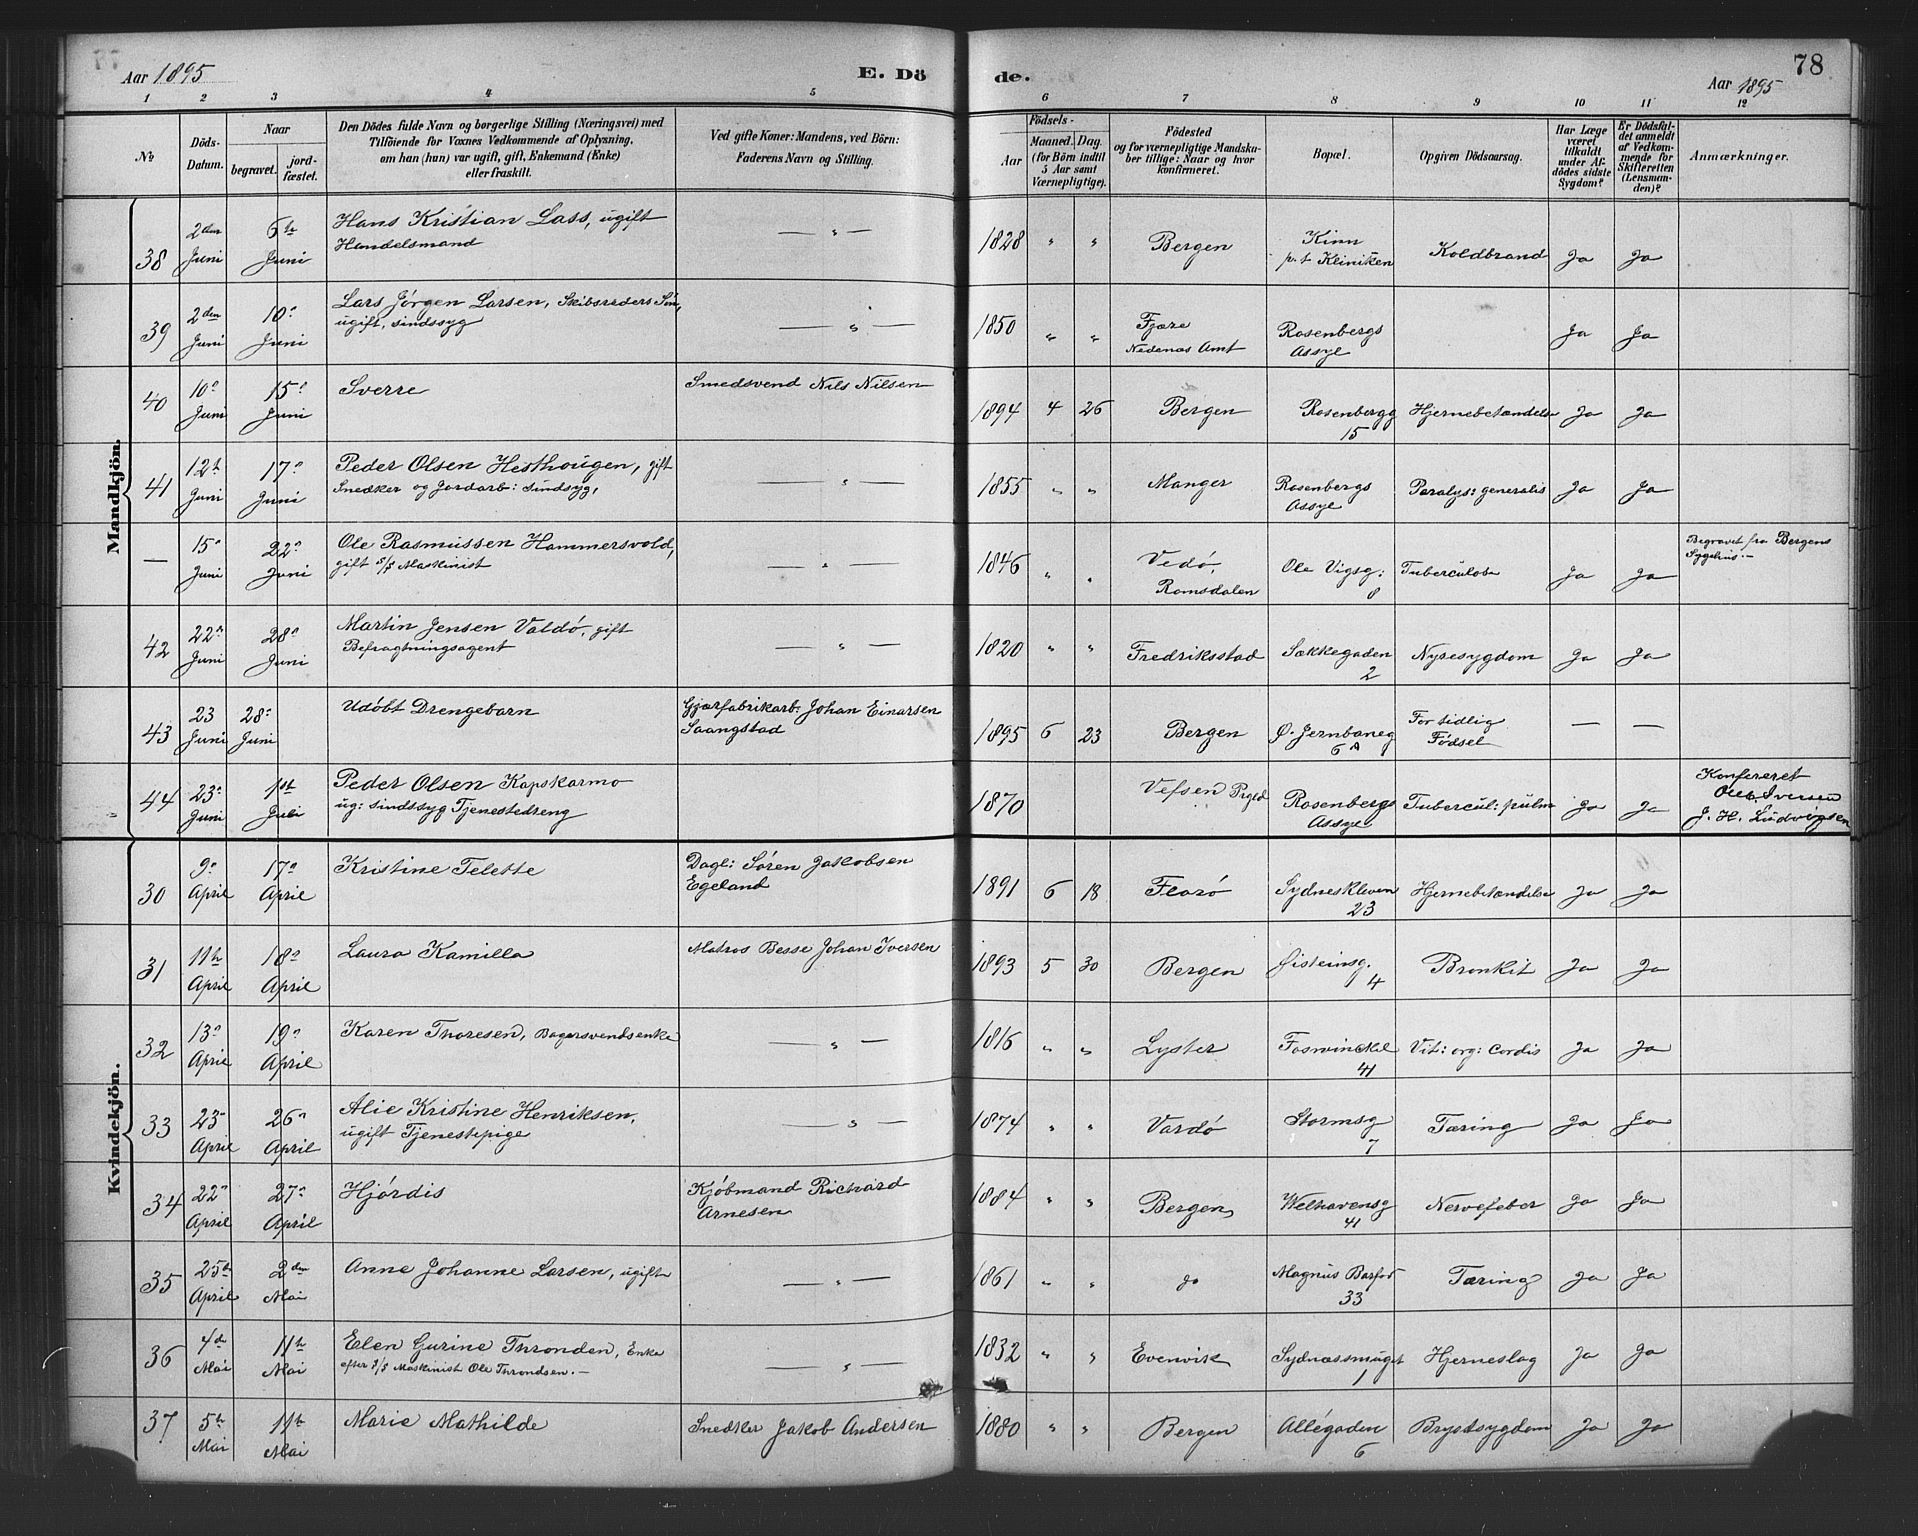 Aar 1895
E. Dö
de.
78
Aar 1895
1 2 3 4 5 6 7 8 9 10 11 12
No
Döds-Datum.
Naar
begravet.
jord-fæstet.
Den Dödes fulde Navn og borgerlige Stilling (Næringsvei) med
Tilföiende for Voxnes Vedkommende af Oplysning,
om han (hun) var ugift, gift, Enkemand (Enke)
eller fraskilt.
Ved gifte Koner: Mandens, ved Börn:
Faderens Navn og Stilling.
Födsels-
Aar
Maaned. Dag.
(for Börn indtil
5 Aar samt
Værnepligtige).
Födested
og for værnepligtige Mandsku-
ber tillige: Naar og hvor
konfirmeret.
Bopæl.
Opgiven Dödsaarsag.
Har Læge
været
tilkaldt
under Af-
dödes sidste
Sygdom?
Er Dödsfal-
det anmeldt
af Vedkom-
mende for
Skifteretten
(Lensman-
den)?
Anmærkninger.
Mandkjön.
38 2den Juni 6te Juni Hans Kristian Lass, ugift Handelsmand — „ — 1828 „ „ Bergen Kinn p.t Kliniken Koldbrand Ja Ja
39 2den Juni 10. Juni Lars Jörgen Larsen, Skibsreders Sön, ugift, sindssyg — „ — 1850 „ „ Fjære Nedenæs Amt Rosenbergs Assye Ja Ja
40 10. Juni 15. Juni Sverre Smedsvend Nils Nilsen 1894 4 26 Bergen Rosenbergg 15 Hjernebetændelse Ja Ja
41 12t Juni 17. Juni Peder Olsen Hesthougen, gift Snedker og Jordarb: sindsyg, — „ — 1855 „ „ Manger Rosenbergs Assye Paralys: generalis Ja Ja
— 15. Juni 22. Juni Ole Rasmussen Hammersvold, gift S/S Maskinist — „ — 1846 „ „ Vedö, Romsdalen Ole Vigsg: 8 Tuberculose Ja Ja Begravet fra Bergens Sygehus.—
42 22. Juni 28. Juni Martin Jensen Valdö, gift Befragtningsagent — „ — 1820 „ „ Fredriksstad Sækkegaden 2 Nyresygdom Ja Ja
43 23 Juni 28. Juni Udöbt Drengebarn Gjærfabrikarb. Johan Einarsen Saangstad 1895 6 23 Bergen Ø. Jernbaneg 6A For tidlig Födsel — —
44 23. Juni 1st Juli Peder Olsen Kapskarmo ug: sindssyg Tjenestedreng 1870 Vefsen Prgld Rosenbergs Assye Tubercul: pulm Ja Ja Konfereret Ole Iversen J. H. Ludvigsen
Kvindekjön.
30 9. April 17. April Kristine Telette Dagl: Sören Jakobsen Egeland 1891 6 18 Florö Sydneskleven 23 Hjernebetændelse Ja Ja
31 11te April 18. April Laura Kamilla Matros Besse Johan Iversen 1893 5 30 Bergen Øisteinsg. 4 Bronkit Ja Ja
32 13. April 19. April Karen Thoresen, Bagersvendsenke — „ — 1816 „ „ Lyster Fosvinckel 41 Vit: org: cordis Ja Ja
33 23. April 26. April Alie Kristine Henriksen, ugift Tjenestepige — „ — 1874 „ „ Vardö Stormsg 7 Tæring Ja Ja
34 22. April 27. April Hjördis Kjöbmand Richard Arnesen 1884 „ „ Bergen Welhavensg 41 Nervefeber Ja Ja
35 25te April 2den Mai Anne Johanne Larsen, ugift — „ — 1861 „ „ do Magnus Barfod 33 Tæring Ja Ja
36 4de Mai 11te Mai Elen Gurine Thronden, Enke efter S/S Maskinist Ole Throndsen.— — „ — 1832 „ „ Evenvik Sydnæssmuget 1 Hjerneslag Ja Ja
37 5te Mai 11te Mai Marie Mathilde Snedker Jakob Andersen 1880 „ „ Bergen Allégaden 6 Brystsygdom Ja Ja